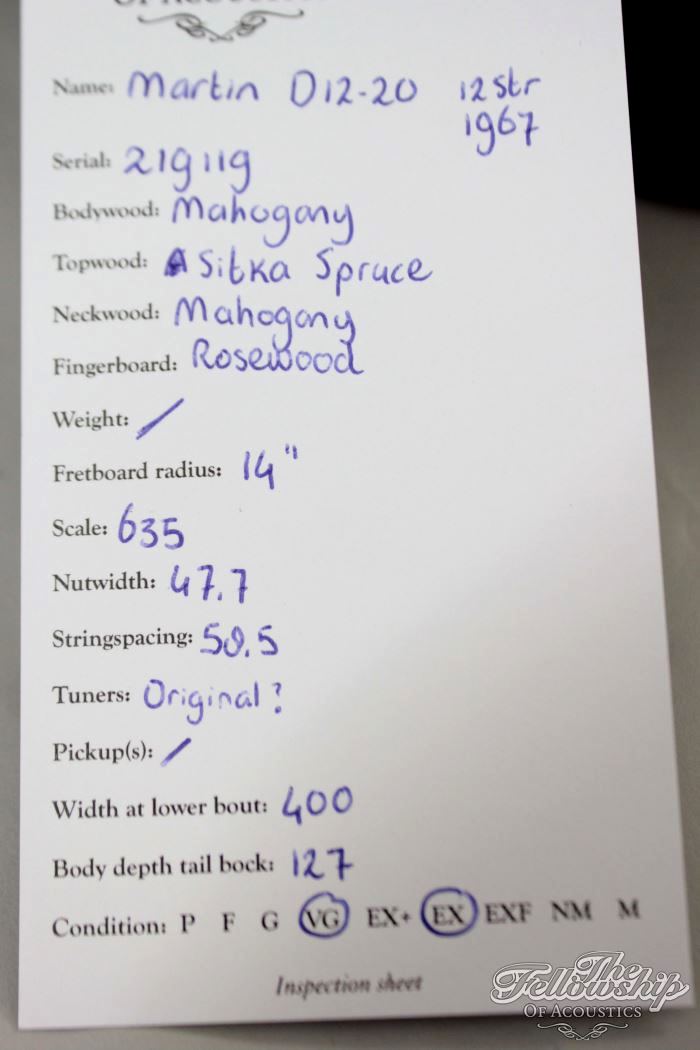 Name: Martin D12-20 12str
1967
Serial: 219119
Bodywood: Mahogany
Topwood: Sitka Spruce
Neckwood: Mahogany
Fingerboard: Rosewood
Weight: /
Fretboard radius: 14"
Scale: 635
Nutwidth: 47.7
Stringspacing:
Tuners: Original?
Pickup(s): /
Width at lower bout: 400
Body depth tail bock: 127
Condition: P F G VG EX+ EX EXF NM M
Inspection sheet
The
Fellowship
OF ACOUSTICS